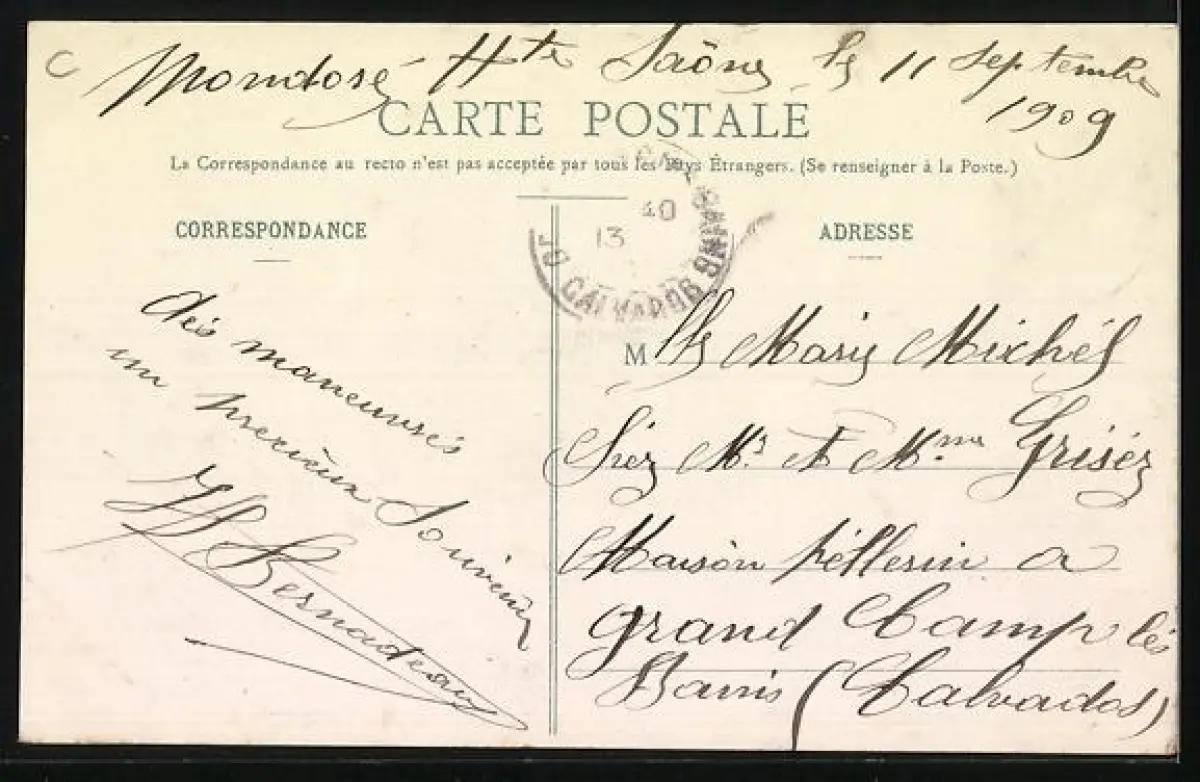 C
Mondoré Hte Saône le 11 septembre
1909
CARTE POSTALE
La Correspondance au recto n'est pas acceptée par tous les Pays Étrangers. (Se renseigner à la Poste.)
40
13
CALVADOS
CORRESPONDANCE
ADRESSE
des maneuvres
un precieux Souvenir
H Bernadeaux
M lle Marie Michel
Chez Mr et Mme Grisez
Maison Pellerin a
Grand Camp les
Bains (Calvados)